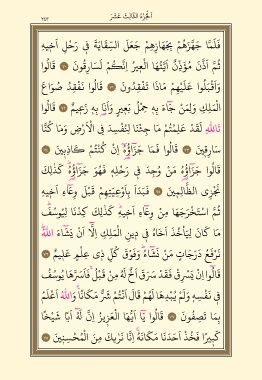 اَلْجُزْءُ الثَّالِثَ عَشَرَ
٢٤٣
فَلَمَّا جَهَّزَهُمْ بِجَهَازِهِمْ جَعَلَ السِّقَايَةَ فٖي رَحْلِ اَخٖيهِ
ثُمَّ اَذَّنَ مُؤَذِّنٌ اَيَّتُهَا الْعٖيرُ اِنَّكُمْ لَسَارِقُونَ ﴿٧٠﴾ قَالُوا
وَاَقْبَلُوا عَلَيْهِمْ مَاذَا تَفْقِدُونَ ﴿٧١﴾ قَالُوا نَفْقِدُ صُوَاعَ
الْمَلِكِ وَلِمَنْ جَٓاءَ بِهٖ حِمْلُ بَعٖيرٍ وَاَنَا بِهٖ زَعٖيمٌ ﴿٧٢﴾ قَالُوا
تَاللّٰهِ لَقَدْ عَلِمْتُمْ مَا جِئْنَا لِنُفْسِدَ فِي الْاَرْضِ وَمَا كُنَّا
سَارِقٖينَ ﴿٧٣﴾ قَالُوا فَمَا جَزَٓاؤُ۬هُٓ اِنْ كُنْتُمْ كَاذِبٖينَ ﴿٧٤﴾
قَالُوا جَزَٓاؤُ۬هُ مَنْ وُجِدَ فٖي رَحْلِهٖ فَهُوَ جَزَٓاؤُ۬هُ كَذٰلِكَ
نَجْزِي الظَّالِمٖينَ ﴿٧٥﴾ فَبَدَاَ بِاَوْعِيَتِهِمْ قَبْلَ وِعَٓاءِ اَخٖيهِ
ثُمَّ اسْتَخْرَجَهَا مِنْ وِعَٓاءِ اَخٖيهِ كَذٰلِكَ كِدْنَا لِيُوسُفَ
مَا كَانَ لِيَأْخُذَ اَخَاهُ فٖي دٖينِ الْمَلِكِ اِلَّٓا اَنْ يَشَٓاءَ اللّٰهُ
نَرْفَعُ دَرَجَاتٍ مَنْ نَشَٓاءُ وَفَوْقَ كُلِّ ذٖي عِلْمٍ عَلٖيمٌ ﴿٧٦﴾
قَالُٓوا اِنْ يَسْرِقْ فَقَدْ سَرَقَ اَخٌ لَهُ مِنْ قَبْلُ فَاَسَرَّهَا يُوسُفُ
فٖي نَفْسِهٖ وَلَمْ يُبْدِهَا لَهُمْ قَالَ اَنْتُمْ شَرٌّ مَكَانًا وَاللّٰهُ اَعْلَمُ
بِمَا تَصِفُونَ ﴿٧٧﴾ قَالُوا يَٓا اَيُّهَا الْعَزٖيزُ اِنَّ لَهُٓ اَبًا شَيْخًا
كَبٖيرًا فَخُذْ اَحَدَنَا مَكَانَهُ اِنَّا نَرٰيكَ مِنَ الْمُحْسِنٖينَ ﴿٧٨﴾